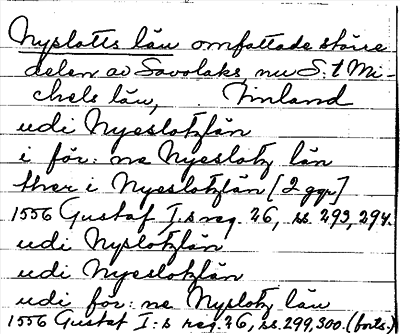 Nyslotts län omfattade större
delen av Savolaks, nu S:t Mi-
chels län, Finland
udi Nyeslotzlän
i för: ne Nyeslotz län
ther i Nyeslotzlän [2 ggr]
1556 Gustaf I:s reg. 26, ss. 293, 294.
udi Nyslotzlän
udi Nyeslotzlän
udi för: ne Nyslotz län
1556 Gustaf I:s reg. 26, ss. 299, 300. (forts.)